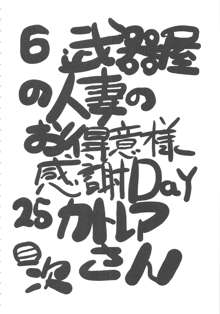 6 武器屋
の人妻の
お得意様
感謝Day
25 カトレア
目次 さん